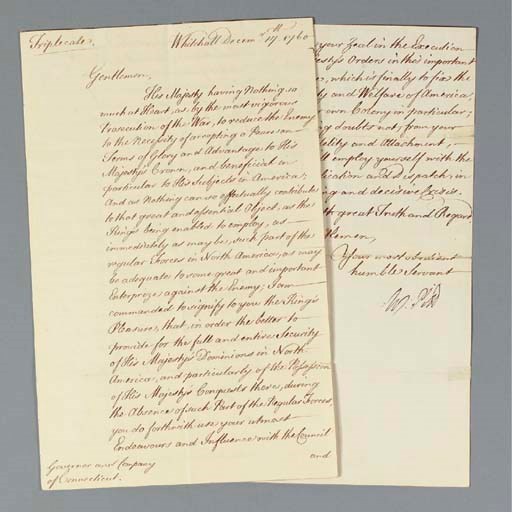 Triplicate.
Whitehall Decem.r 17.th 1760
Gentlemen,
His Majesty having Nothing so
much at Heart, as by the most vigorous
Prosecution of the War, to reduce the Enemy
to the Necessity of accepting a Peace on
Terms of Glory and Advantage to His
Majesty's Crown, and beneficial in
particular to His Subjects in America;
And as Nothing can so effectually contribute
to that great and essential Object, as the
King's being enabled to employ, as
immediately as may be, such part of the
regular Forces in North America, as may
be adequate to some great and important
Enterprize against the Enemy; I am
commanded to signify to you the King's
Pleasure, that, in order the better to
provide for the full and entire Security
of His Majesty's Dominions in North
America, and particularly of the Possession
of His Majesty's Conquests there, during
the Absence of such Part of the Regular Forces,
you do forthwith use your utmost
Endeavours and Influence with the Council
and
Governor and Company
of Connecticut.
your Zeal in the Execution
Majesty's Orders in this important
which is finally to fix the
and Welfare of America,
own Colony in particular;
doubts not, from your
and Attachment,
employ yourself with the
and Dispatch, in
and decisive Crisis.
great Truth and Regard
Your most obedient
humble Servant
W. Pitt